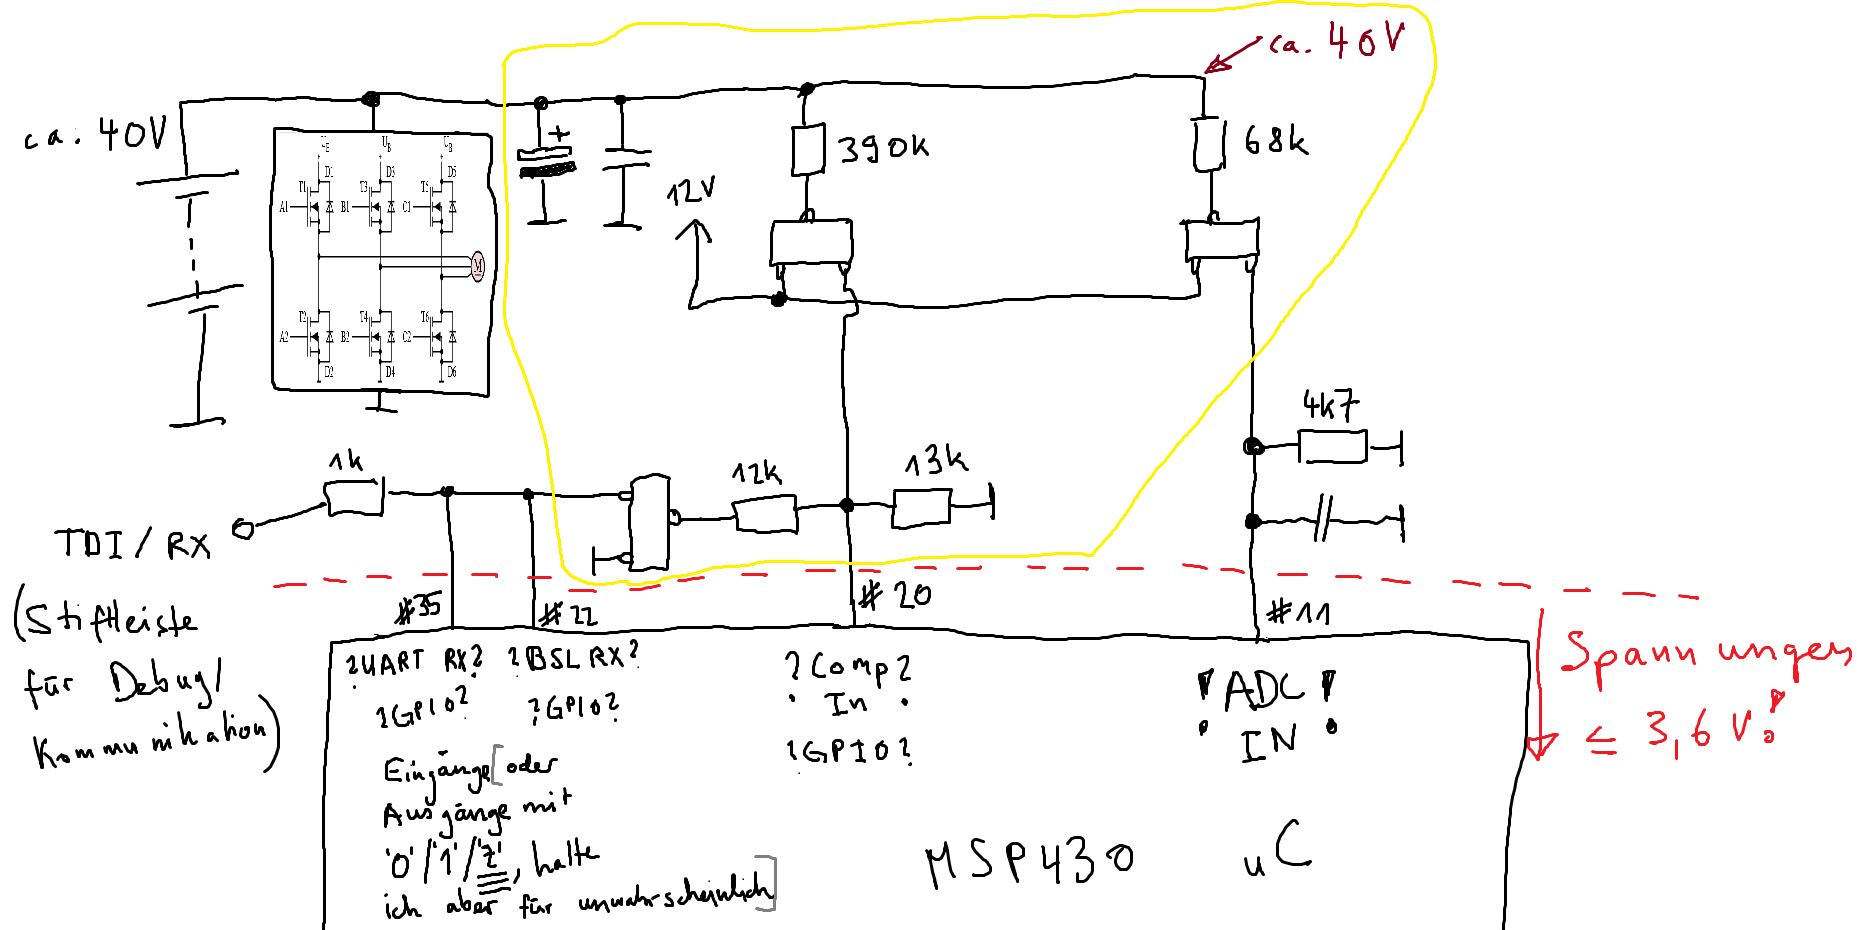 ca. 40V
ca. 40V
390k
68k
12V
U_B
D1 D3 D5
T1 T3 T5
A1 B1 C1
M
T2 T4 T6
A2 B2 C2
D2 D4 D6
4k7
1k
12k
13k
TDI/RX
(Stiftleiste
für Debug/
Kommunikation)
#35
#22
#20
#11
?UART RX?
?GPIO?
?BSL RX?
?GPIO?
?Comp?
In
?GPIO?
!ADC!
IN
Spannungen
≤ 3,6 V!
Eingänge [oder
Ausgänge mit
'0'/'1'/'Z', halte
ich aber für unwahrscheinlich]
MSP430 uC